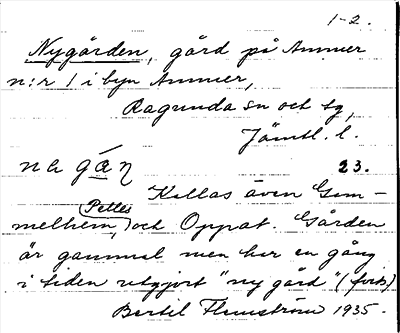 1-2.
Nygården, gård på Ammer
n:r 1 i byn Ammer,
Ragunda sn och tg,
Jämtl. l.
nagάŋ 23.
Kallas även Gam-
Pelles
melhem, och Oppat. Gården
är gammal men har en gång
i tiden utgjort "ny gård" (forts)
Bertil Flemström 1935.